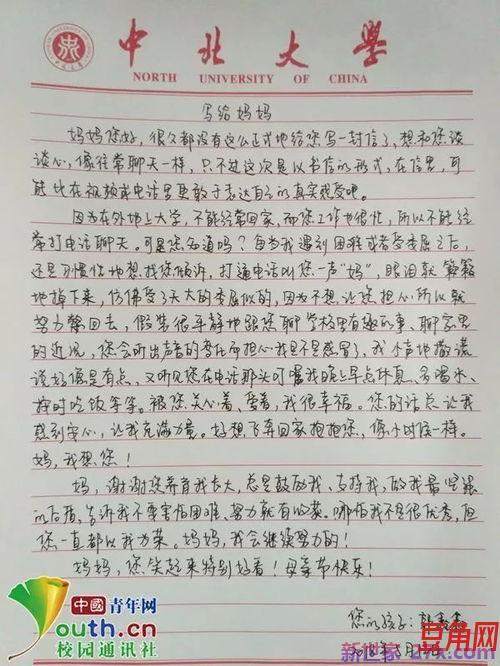 中北大學
NORTH UNIVERSITY OF CHINA
写给妈妈
妈妈您好，很久都没有这么正式地给您写一封信了，想和您谈
谈心，像往常聊天一样，只不过这次是以书信的形式，在信里，可
能比在视频或电话里更敢于表达自己的真实感受吧。
因为在外地上大学，不能经常回家，而您工作也很忙，所以不能经
常打电话聊天。可是您知道吗？每当我遇到困难或者受委屈之后，
还是习惯性地想找您倾诉，打通电话叫您一声“妈”，眼泪就簌簌
地掉下来，仿佛受了天大的委屈似的，因为不想让您担心所以就
努力憋回去，假装很平静地跟您聊学校里有趣的事、聊家里
的近况，您会听出声音的变化而担心我是不是感冒了，我小声地撒谎
说好像是有点，又听见您在电话那头叮嘱我晚上早点休息、多喝水、
按时吃饭等等。被您关心着、爱着，我很幸福。您的话总让我
感到安心，让我充满力量。好想飞奔回家抱抱您，像小时候一样。
妈，我想您！
妈，谢谢您养育我长大，总是鼓励我、支持我，做我最坚强
的后盾，告诉我不要害怕困难，努力就有收获。哪怕我不是很优秀，但
您一直都以我为荣。妈妈，我会继续努力的！
妈妈，您笑起来特别好看！母亲节快乐！
您的孩子：
2018年5月
中國青年网
youth.cn
校园通讯社
豆角网